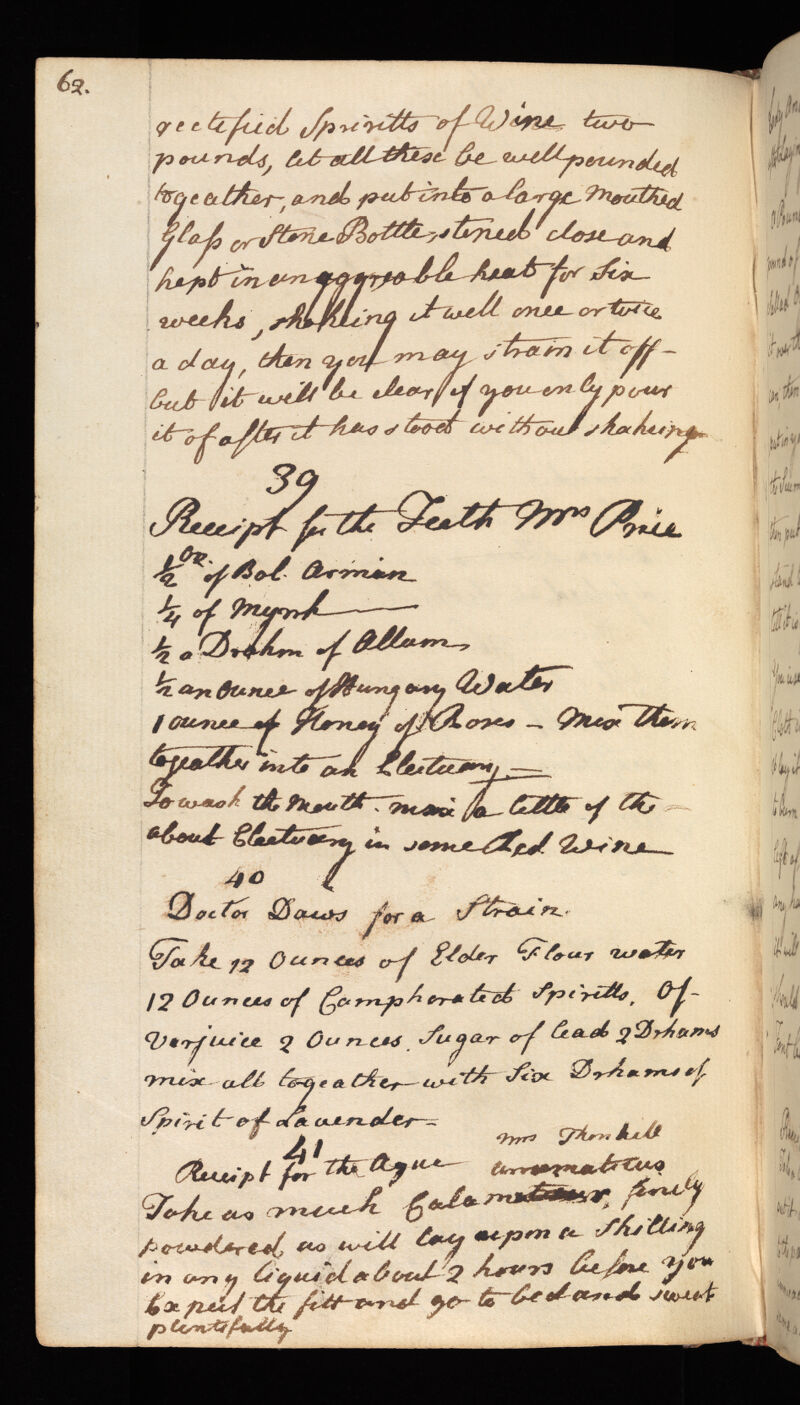 62.
rectefied Spriritts of Wine two
pounds, let all these be well pounded
togeather, and put into a large Mouthed
Glaſs or Stone Bottle, stened close and
kept in an aggreoble heat for Six
weeks, shakeing it well once or twice
a day, then you may strain it off -
but it will be clear if you only pour
it of after it has stood without shakeing
39
Receipt for the Teeth Mrs Price
1/2 Oz. of Bol. Armian
1/4 of Myrrh
1/2 a Drahm of Allum
1/2 an Ounce of Hungary Water
1 ounce of Honey of Roses - Mix Them
togeather into an Electuary
To wash the Mouth. mix a little of the
about Electuary in some Red Wine
40
Doctor Daws for a Strain.
Take 12 Ounces of Elder Flour water
12 Ounces of Camphorated Spiritts, Of
Verjuice 2 Ounces. Sugar of lead 2 Drhams
mix all togeather with Six Drhams of
Spirit of Lavender
41
Receipt for the Ague Mrs Thonhill
arromaticus
Take as much Calamus, finely
powdered as will lay upon a Shilling
in any liquid about 2 hours before you
Expect the fitt and go to bed and sweat
plentefully